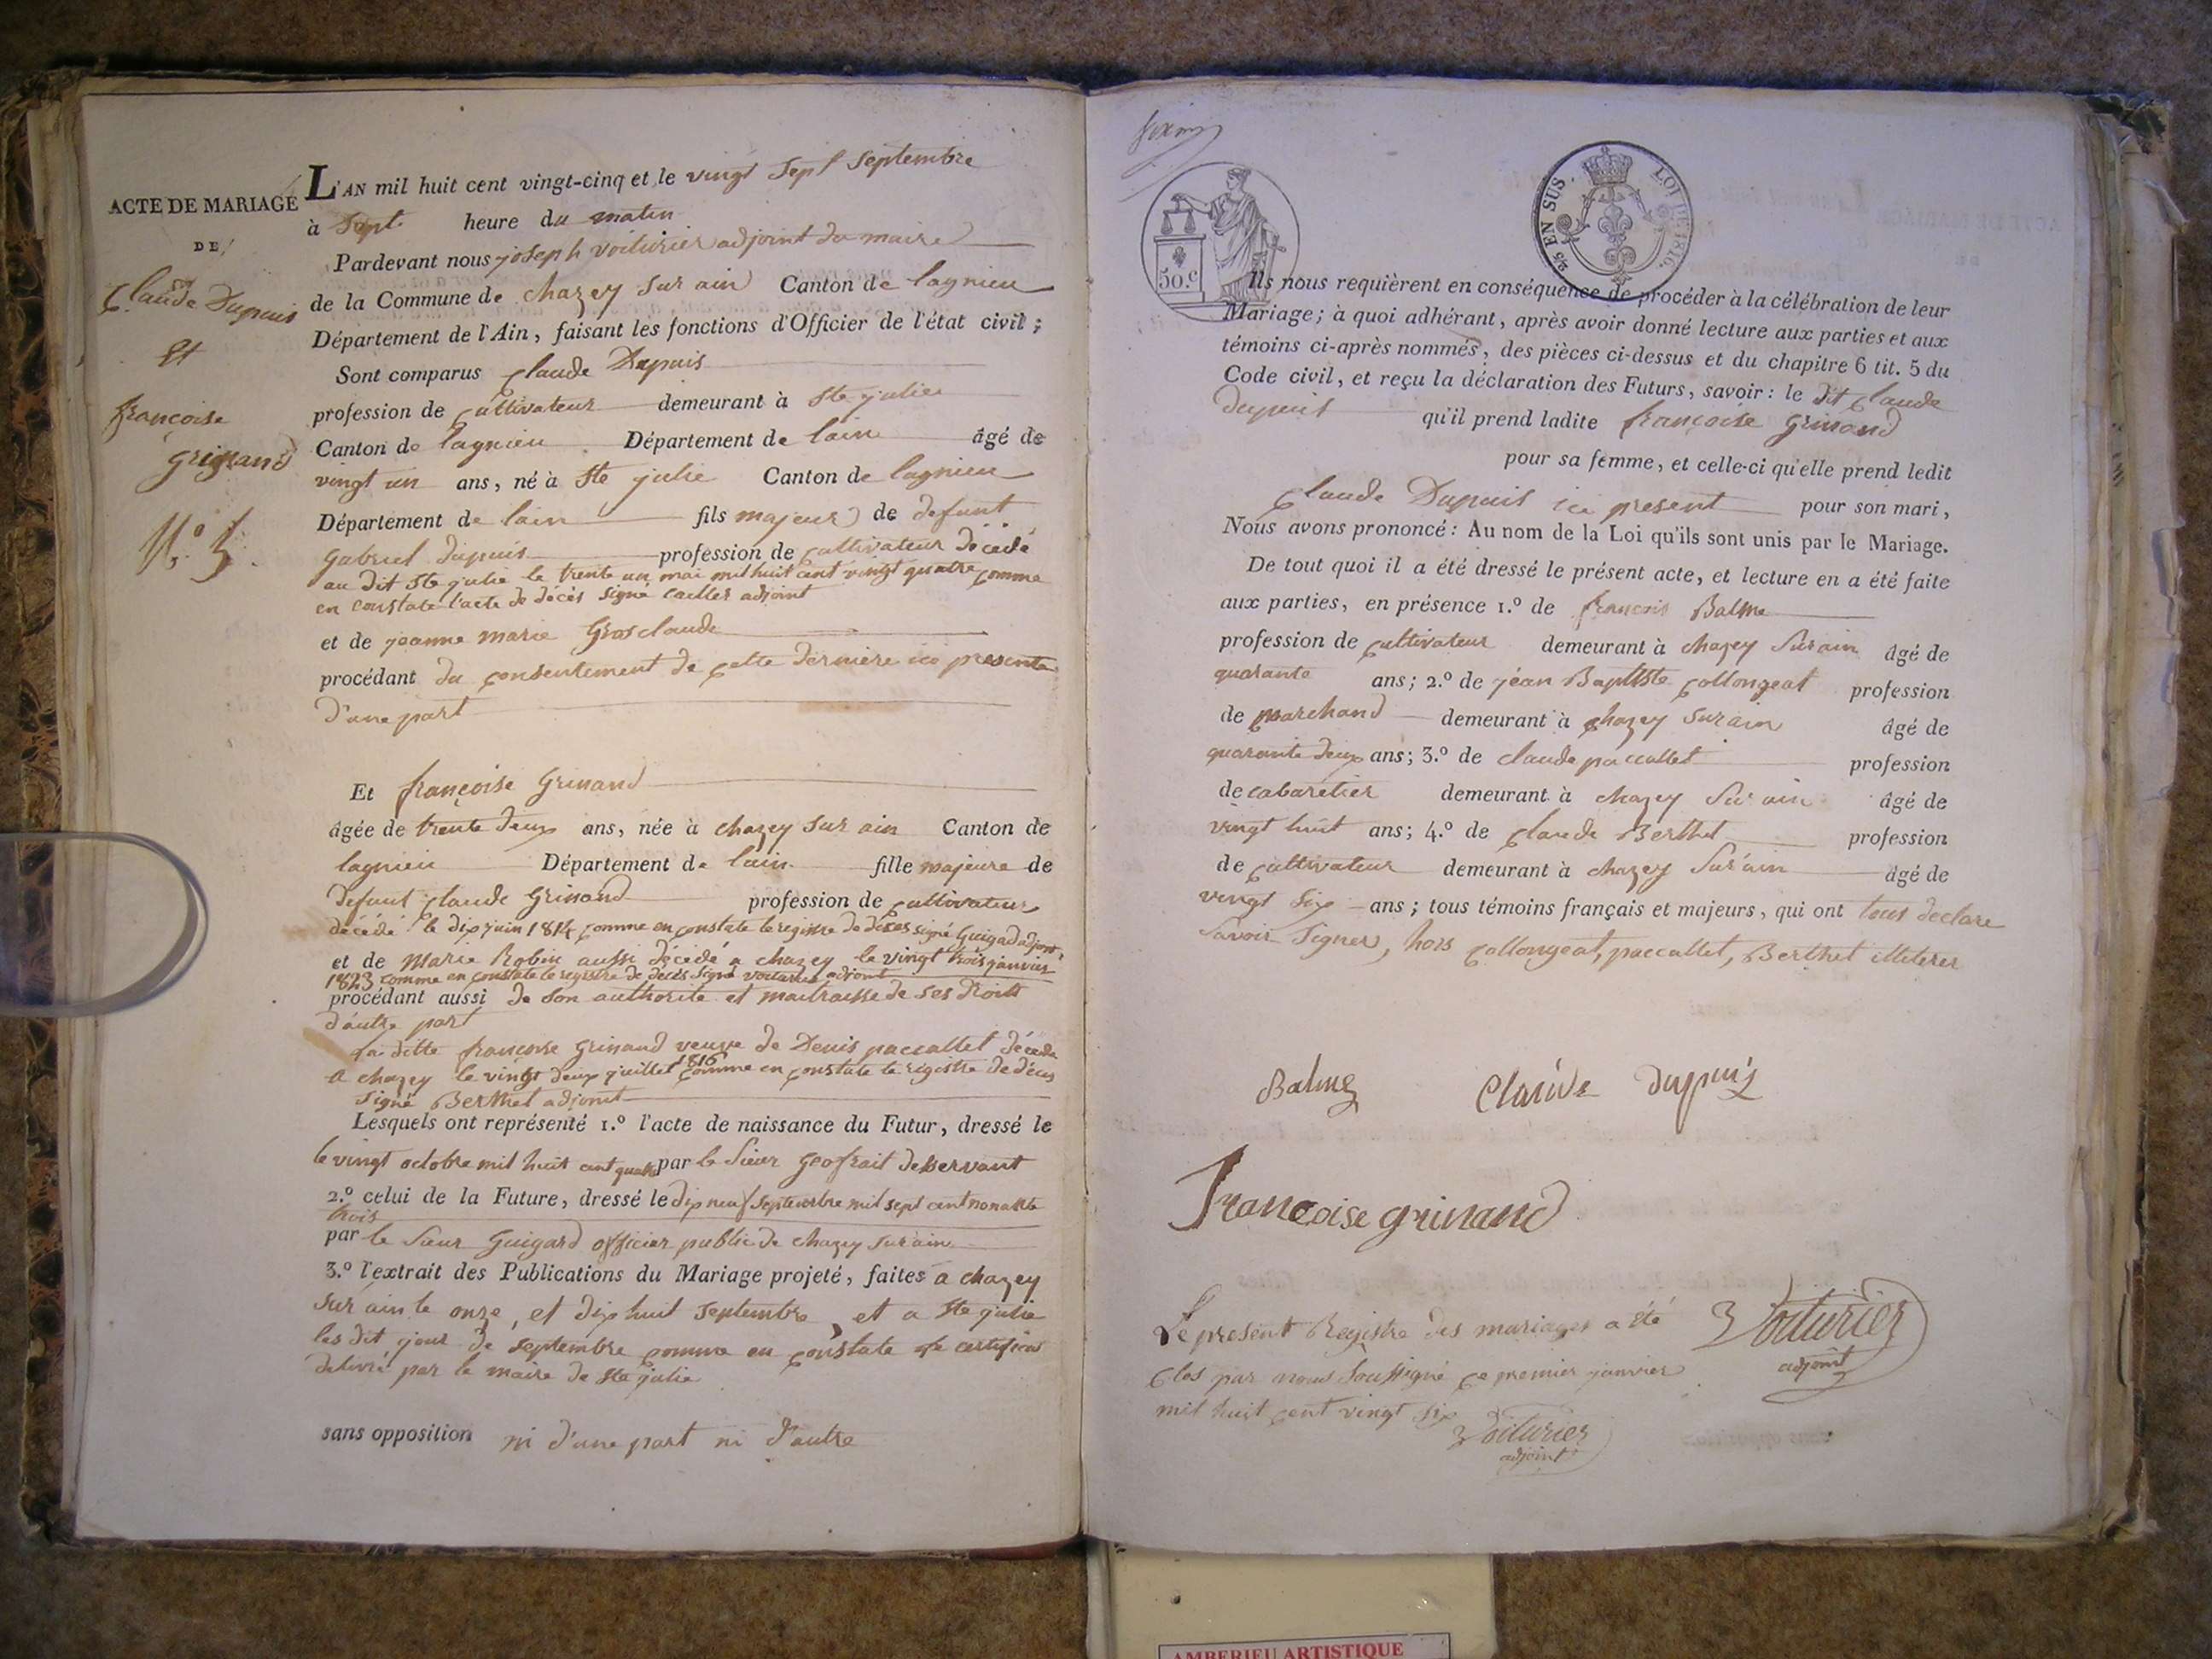 ACTE DE MARIAGE
DE
Claude Dupuis
Et
françoise
Grinand
N.º 5.
L'AN mil huit cent vingt-cinq et le vingt sept septembre
à sept heure du matin
Pardevant nous joseph voiturier adjoint du maire
de la Commune de chazey sur ain Canton de lagnieu
Département de l'Ain, faisant les fonctions d'Officier de l'état civil;
Sont comparus Claude Dupuis
profession de Cultivateur demeurant à Ste julie
Canton de lagnieu Département de lain âgé de
vingt un ans, né à Ste julie Canton de lagnieu
Département de lain fils majeur de defunt
Gabriel dupuis profession de Cultivateur décédé
au dit Ste julie le trente un mai mil huit cent vingt quatre comme
en constate l'acte de décès signé adjoint
et de jeanne marie Grosclaude
procédant du consentement de cette dernière ici presente
d'une part
Et françoise Grinand
âgée de trente deux ans, née à chazey sur ain Canton de
lagnieu Département de lain fille majeure de
defunt Claude Grinand profession de Cultivateur
décédé le dix juin 1814 comme en constate le registre de déces signé Guigard adjoint
et de Marie Robin aussi décédé a chazey le vingt trois janvier
1823 comme en constate le registre de décès signé voiturier adjoint
procédant aussi de son authorite et maitraisse de ses droits
d'autre part
la ditte francoise Grinand veuve de Denis paccallet décédé
a chazey le vingt deux juillet 1816 comme en constate le registre de déces
signé Berthet adjoint
Lesquels ont représenté 1.º l'acte de naissance du Futur, dressé le
le vingt octobre mil huit cent quatre par le Sieur Geofrait desservant
2.º celui de la Future, dressé le dix neuf septembre mil sept cent nonante
trois
par le Sieur Guigard officier public de chazey sur ain
3.º l'extrait des Publications du Mariage projeté, faites a chazey
sur ain le onze, et dix huit septembre, et a Ste julie
les dit jour de septembre comme en constate le certificat
delivré par le maire de Ste julie
sans opposition ni d'une part ni d'autre
50.c
25 EN SUS. LOI DE 1816.
Ils nous requièrent en conséquence de procéder à la célébration de leur
Mariage; à quoi adhérant, après avoir donné lecture aux parties et aux
témoins ci-après nommés, des pièces ci-dessus et du chapitre 6 tit. 5 du
Code civil, et reçu la déclaration des Futurs, savoir: le dit Claude
dupuis qu'il prend ladite françoise Grinand
pour sa femme, et celle-ci qu'elle prend ledit
Claude Dupuis ici present pour son mari,
Nous avons prononcé: Au nom de la Loi qu'ils sont unis par le Mariage.
De tout quoi il a été dressé le présent acte, et lecture en a été faite
aux parties, en présence 1.º de francois Balme
profession de Cultivateur demeurant à chazey Sur ain âgé de
quarante ans; 2.º de jean Baptiste Collongeat profession
de marchand demeurant à chazey sur ain âgé de
quarante deux ans; 3.º de claude paccallet profession
de cabarétier demeurant à chazey Sur ain âgé de
vingt huit ans; 4.º de Claude Berthet profession
de Cultivateur demeurant à chazey Sur ain âgé de
vingt six ans; tous témoins français et majeurs, qui ont tous declare
savoir signer, hors Collongeat, paccallet, Berthet
Balme Claude dupuis
Francoise grinand
Le present Registre des mariages a été
Clos par nous Soussigné ce premier janvier
mil huit cent vingt six
Voiturier
adjoint
Voiturier
adjoint
AMBERIEU ARTISTIQUE